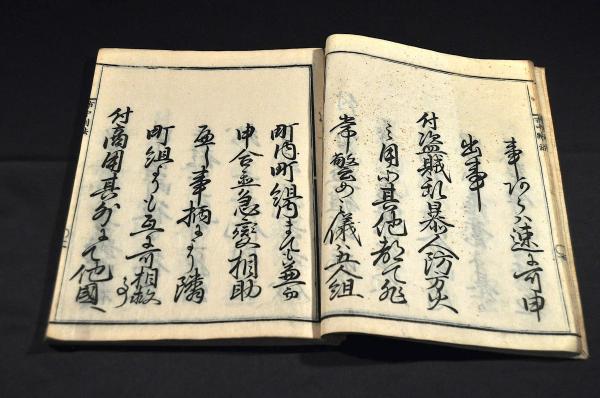 事阿らハ速ニ可申
出事
付盗賊乱暴人防方火
之用心其他都て非
常警め之儀ハ五人組
町内町續までも兼而
申合急變相助
事柄より隣
町組よりも互ニ可相救事
付商用其外にて他國へ